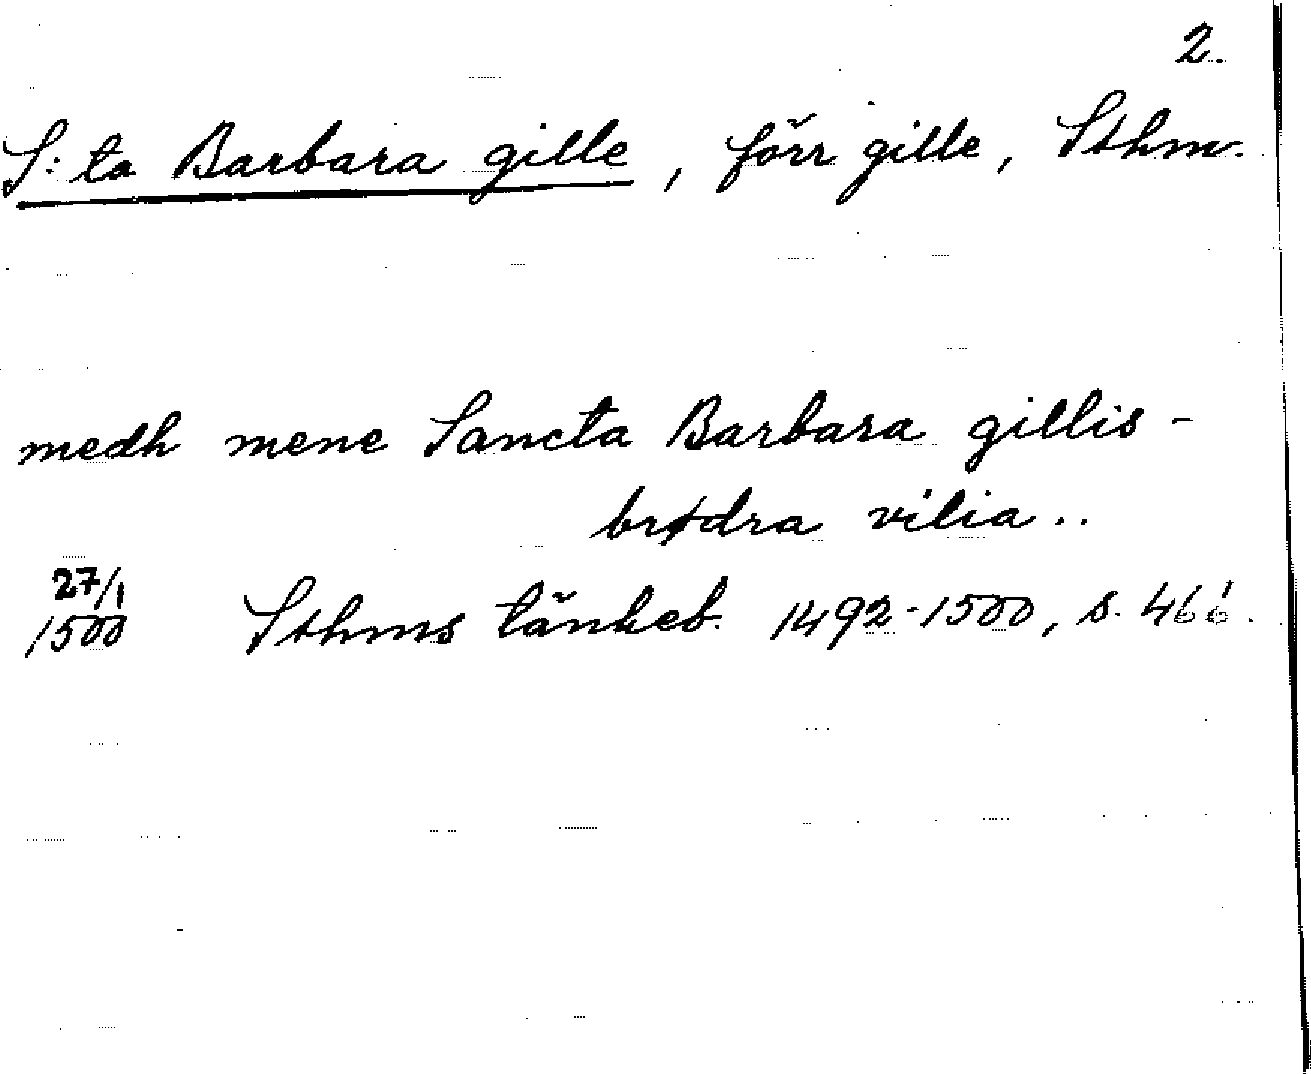 2.
S:ta Barbara gille, förr gille, Sthm.
medh mene Sancta Barbara gillis-
brødra vilia..
27/1
1500 Sthms tänkeb. 1492-1500, s. 466.